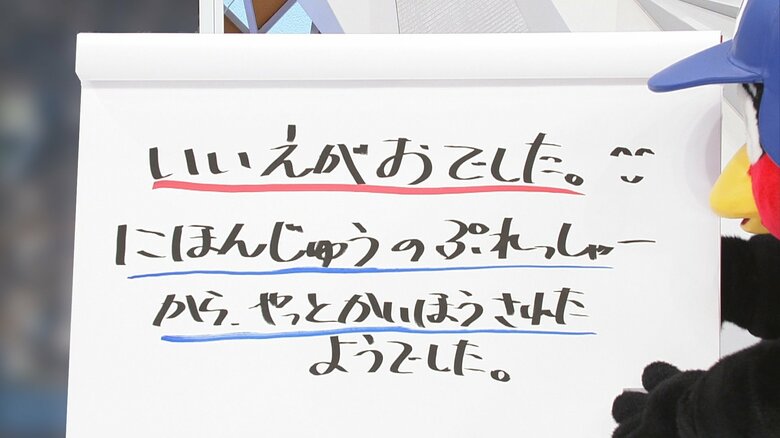 いいえがおでした。^^
にほんじゅうのぷれっしゃー
から、やっとかいほうされた
ようでした。